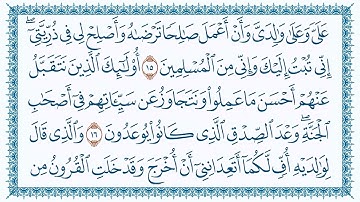 عَلَىَّ وَعَلَىٰ وَٰلِدَىَّ وَأَنْ أَعْمَلَ صَٰلِحًا تَرْضَىٰهُ وَأَصْلِحْ لِى فِى ذُرِّيَّتِىٓ ۖ
إِنِّى تُبْتُ إِلَيْكَ وَإِنِّى مِنَ ٱلْمُسْلِمِينَ ١٥ أُو۟لَٰٓئِكَ ٱلَّذِينَ نَتَقَبَّلُ
عَنْهُمْ أَحْسَنَ مَا عَمِلُوا۟ وَنَتَجَاوَزُ عَن سَيِّـَٔاتِهِمْ فِىٓ أَصْحَٰبِ
ٱلْجَنَّةِ ۖ وَعْدَ ٱلصِّدْقِ ٱلَّذِى كَانُوا۟ يُوعَدُونَ ١٦ وَٱلَّذِى قَالَ
لِوَٰلِدَيْهِ أُفٍّ لَّكُمَآ أَتَعِدَانِنِىٓ أَنْ أُخْرَجَ وَقَدْ خَلَتِ ٱلْقُرُونُ مِن